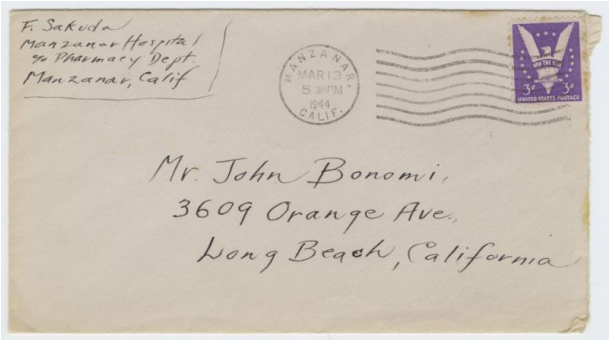 F. Sakuda
Manzanar Hospital
℅ Pharmacy Dept.
Manzanar, Calif
MANZANAR
MAR 13
5 30 PM
1944
CALIF.
WIN THE WAR
3¢ 3¢
UNITED STATES POSTAGE
Mr. John Bonomi,
3609 Orange Ave.,
Long Beach, California